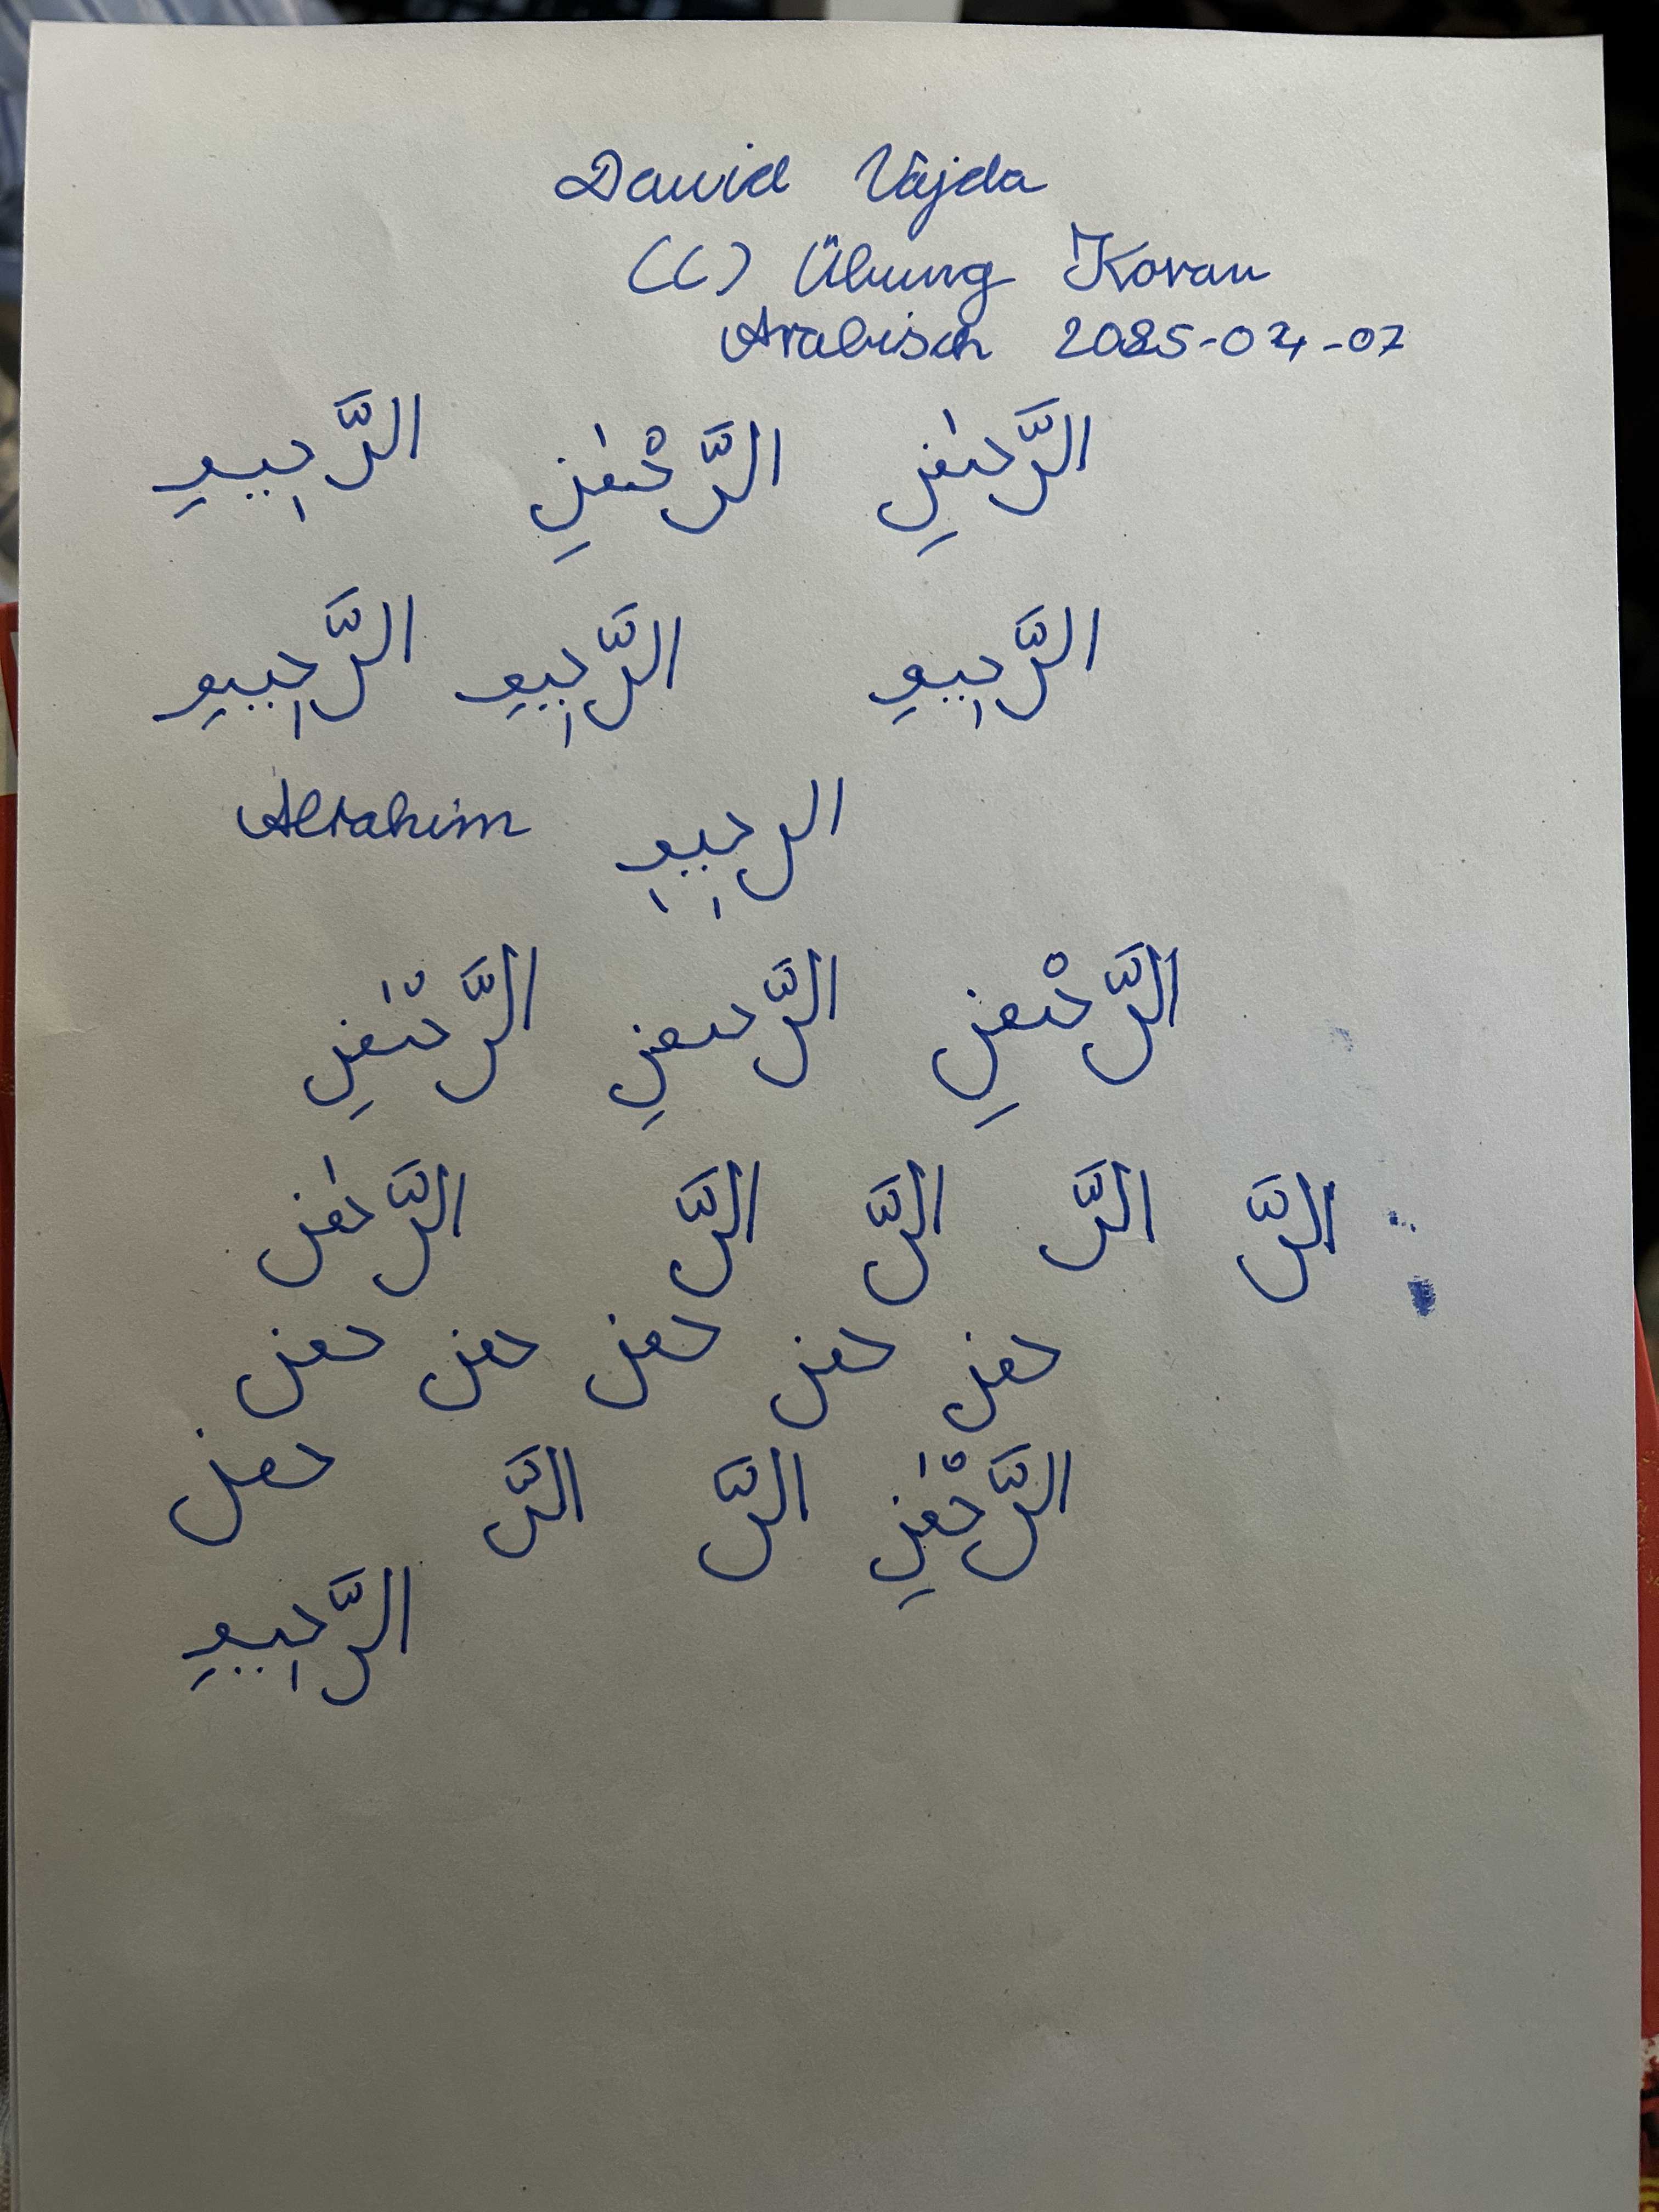 David Vajda
(C) Übung Koran
Arabisch 2025-04-07
الرَّحمٰنِ الرَّحْمٰنِ الرَّحِيمِ
الرَّحِيمِ الرَّحِيمِ الرَّحِيمِ
Alrahim الرحِيمِ
الرَّحْمنِ الرَّحمنِ الرَّحْمٰنِ
الرَّ الرَّ الرَّ الرَّ الرَّحمٰن
حمن حمن حمن حمن حمن
الرَّحْمٰنِ الرَّ الرَّ حمن
الرَّحِيمِ